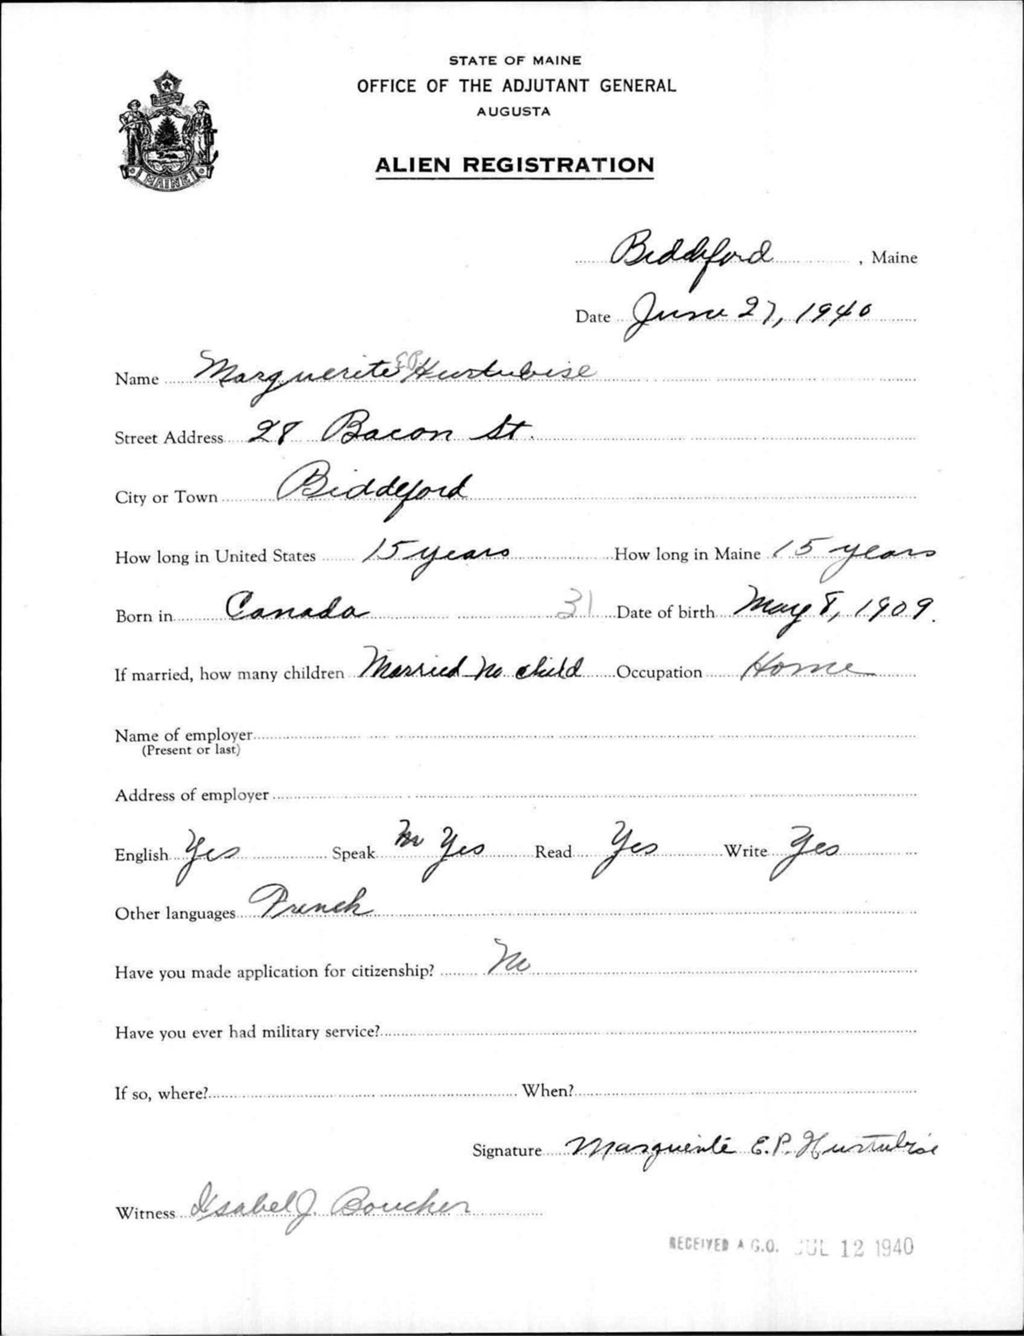 STATE OF MAINE
OFFICE OF THE ADJUTANT GENERAL
AUGUSTA
ALIEN REGISTRATION
MAINE
Biddeford, Maine
Date June 27, 1940
Name Marguerite E.P. Hurtubise
Street Address 28 Bacon St.
City or Town Biddeford
How long in United States 15 years How long in Maine 15 years
Born in Canada 31 Date of birth May 8, 1909.
If married, how many children Married no child Occupation Home
Name of employer
(Present or last)
Address of employer
English Yes Speak Yes Read Yes Write Yes
Other languages French
Have you made application for citizenship? No
Have you ever had military service?
If so, where? When?
Signature Marguerite E.P. Hurtubise
Witness Isabel J. Boucher
RECEIVED A.G.O. JUL 12 1940